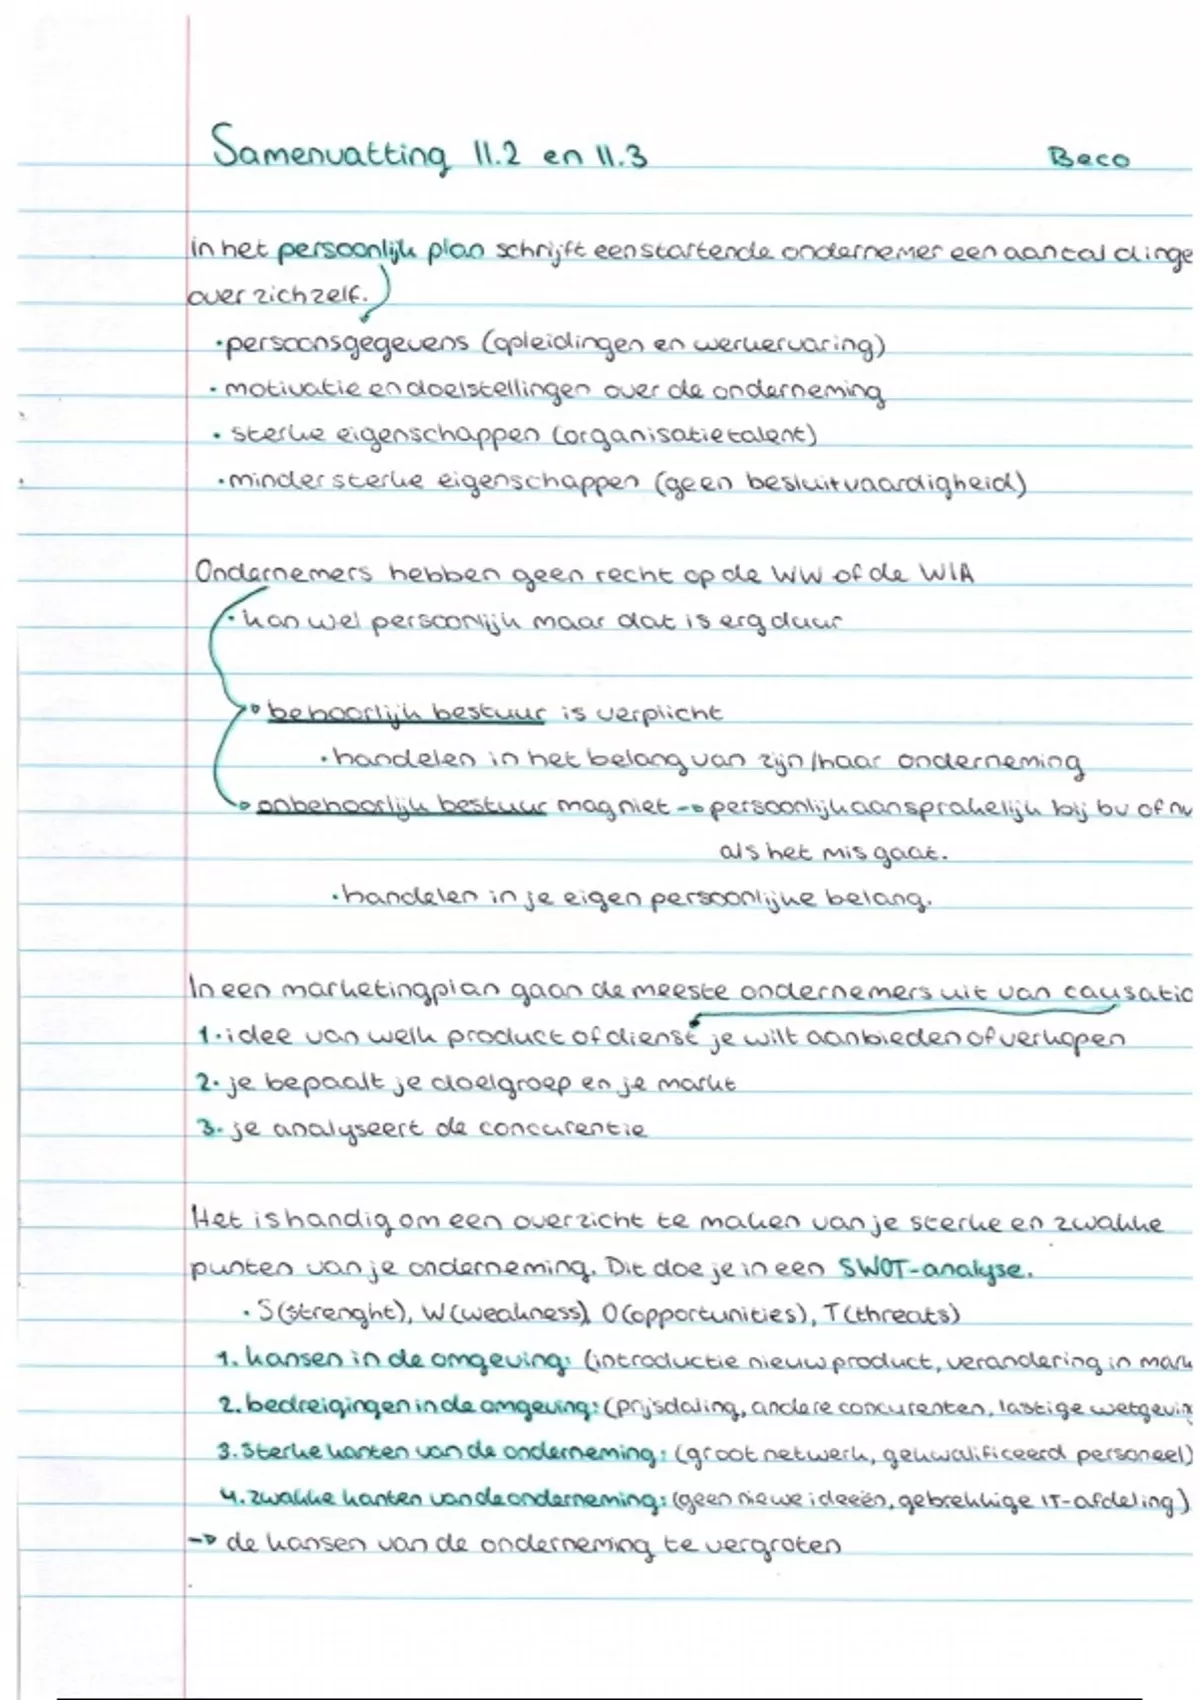 Samenvatting 11.2 en 11.3 Beco
in het persoonlijk plan schrijft een startende ondernemer een aantal dinge
over zichzelf.
· persoonsgegevens (opleidingen en werkervaring)
· motivatie en doelstellingen over de onderneming
· sterke eigenschappen (organisatietalent)
· minder sterke eigenschappen (geen besluitvaardigheid)
Ondernemers hebben geen recht op de WW of de WIA
· kan wel persoonlijk maar dat is erg duur
behoorlijk bestuur is verplicht
· handelen in het belang van zijn/haar onderneming
onbehoorlijk bestuur mag niet → persoonlijk aansprakelijk bij bv of nv
als het mis gaat.
· handelen in je eigen persoonlijke belang.
In een marketingplan gaan de meeste ondernemers uit van causatio
1. idee van welk product of dienst je wilt aanbieden of verkopen
2. je bepaalt je doelgroep en je markt
3. je analyseert de concurentie
Het is handig om een overzicht te maken van je sterke en zwakke
punten van je onderneming. Dit doe je in een SWOT-analyse.
· S (strenght), W (weakness), O (opportunities), T (threats)
1. kansen in de omgeving: (introductie nieuw product, verandering in mark
2. bedreigingen in de omgeving: (prijsdaling, andere concurenten, lastige wetgevin
3. Sterke kanten van de onderneming: (groot netwerk, gekwalificeerd personeel)
4. zwakke kanten van de onderneming: (geen niewe ideeën, gebrekkige IT-afdeling)
→ de kansen van de onderneming te vergroten